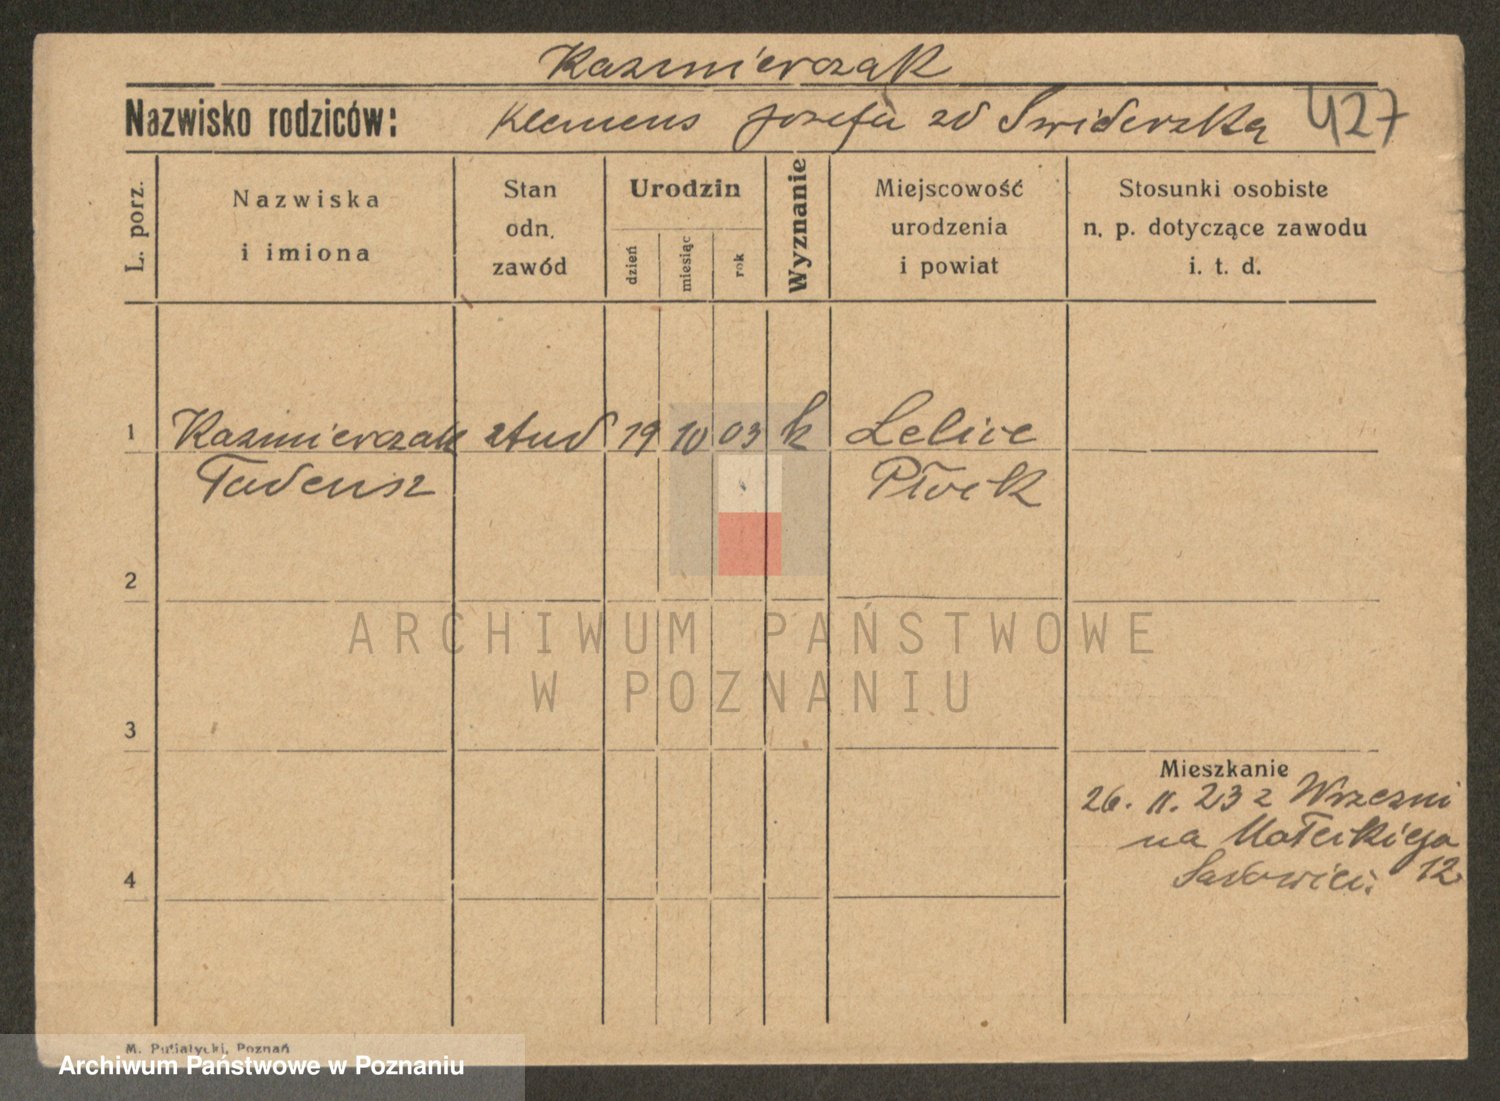 Kazmierczak
Nazwisko rodziców: Klemens Jozefa zd Swiderska 427
L. porz.
Nazwiska
i imiona
Stan
odn.
zawód
Urodzin
dzień
miesiąc
rok
Wyznanie
Miejscowość
urodzenia
i powiat
Stosunki osobiste
n. p. dotyczące zawodu
i. t. d.
1 Kazmierczak stud 19 10 03 k Lelice
Tadeusz Płock
2
ARCHIWUM PAŃSTWOWE
W POZNANIU
3
Mieszkanie
26. II. 23 z Wrzesni
na Małeckiego
12
4
M. Pusiatycki, Poznań
Archiwum Państwowe w Poznaniu